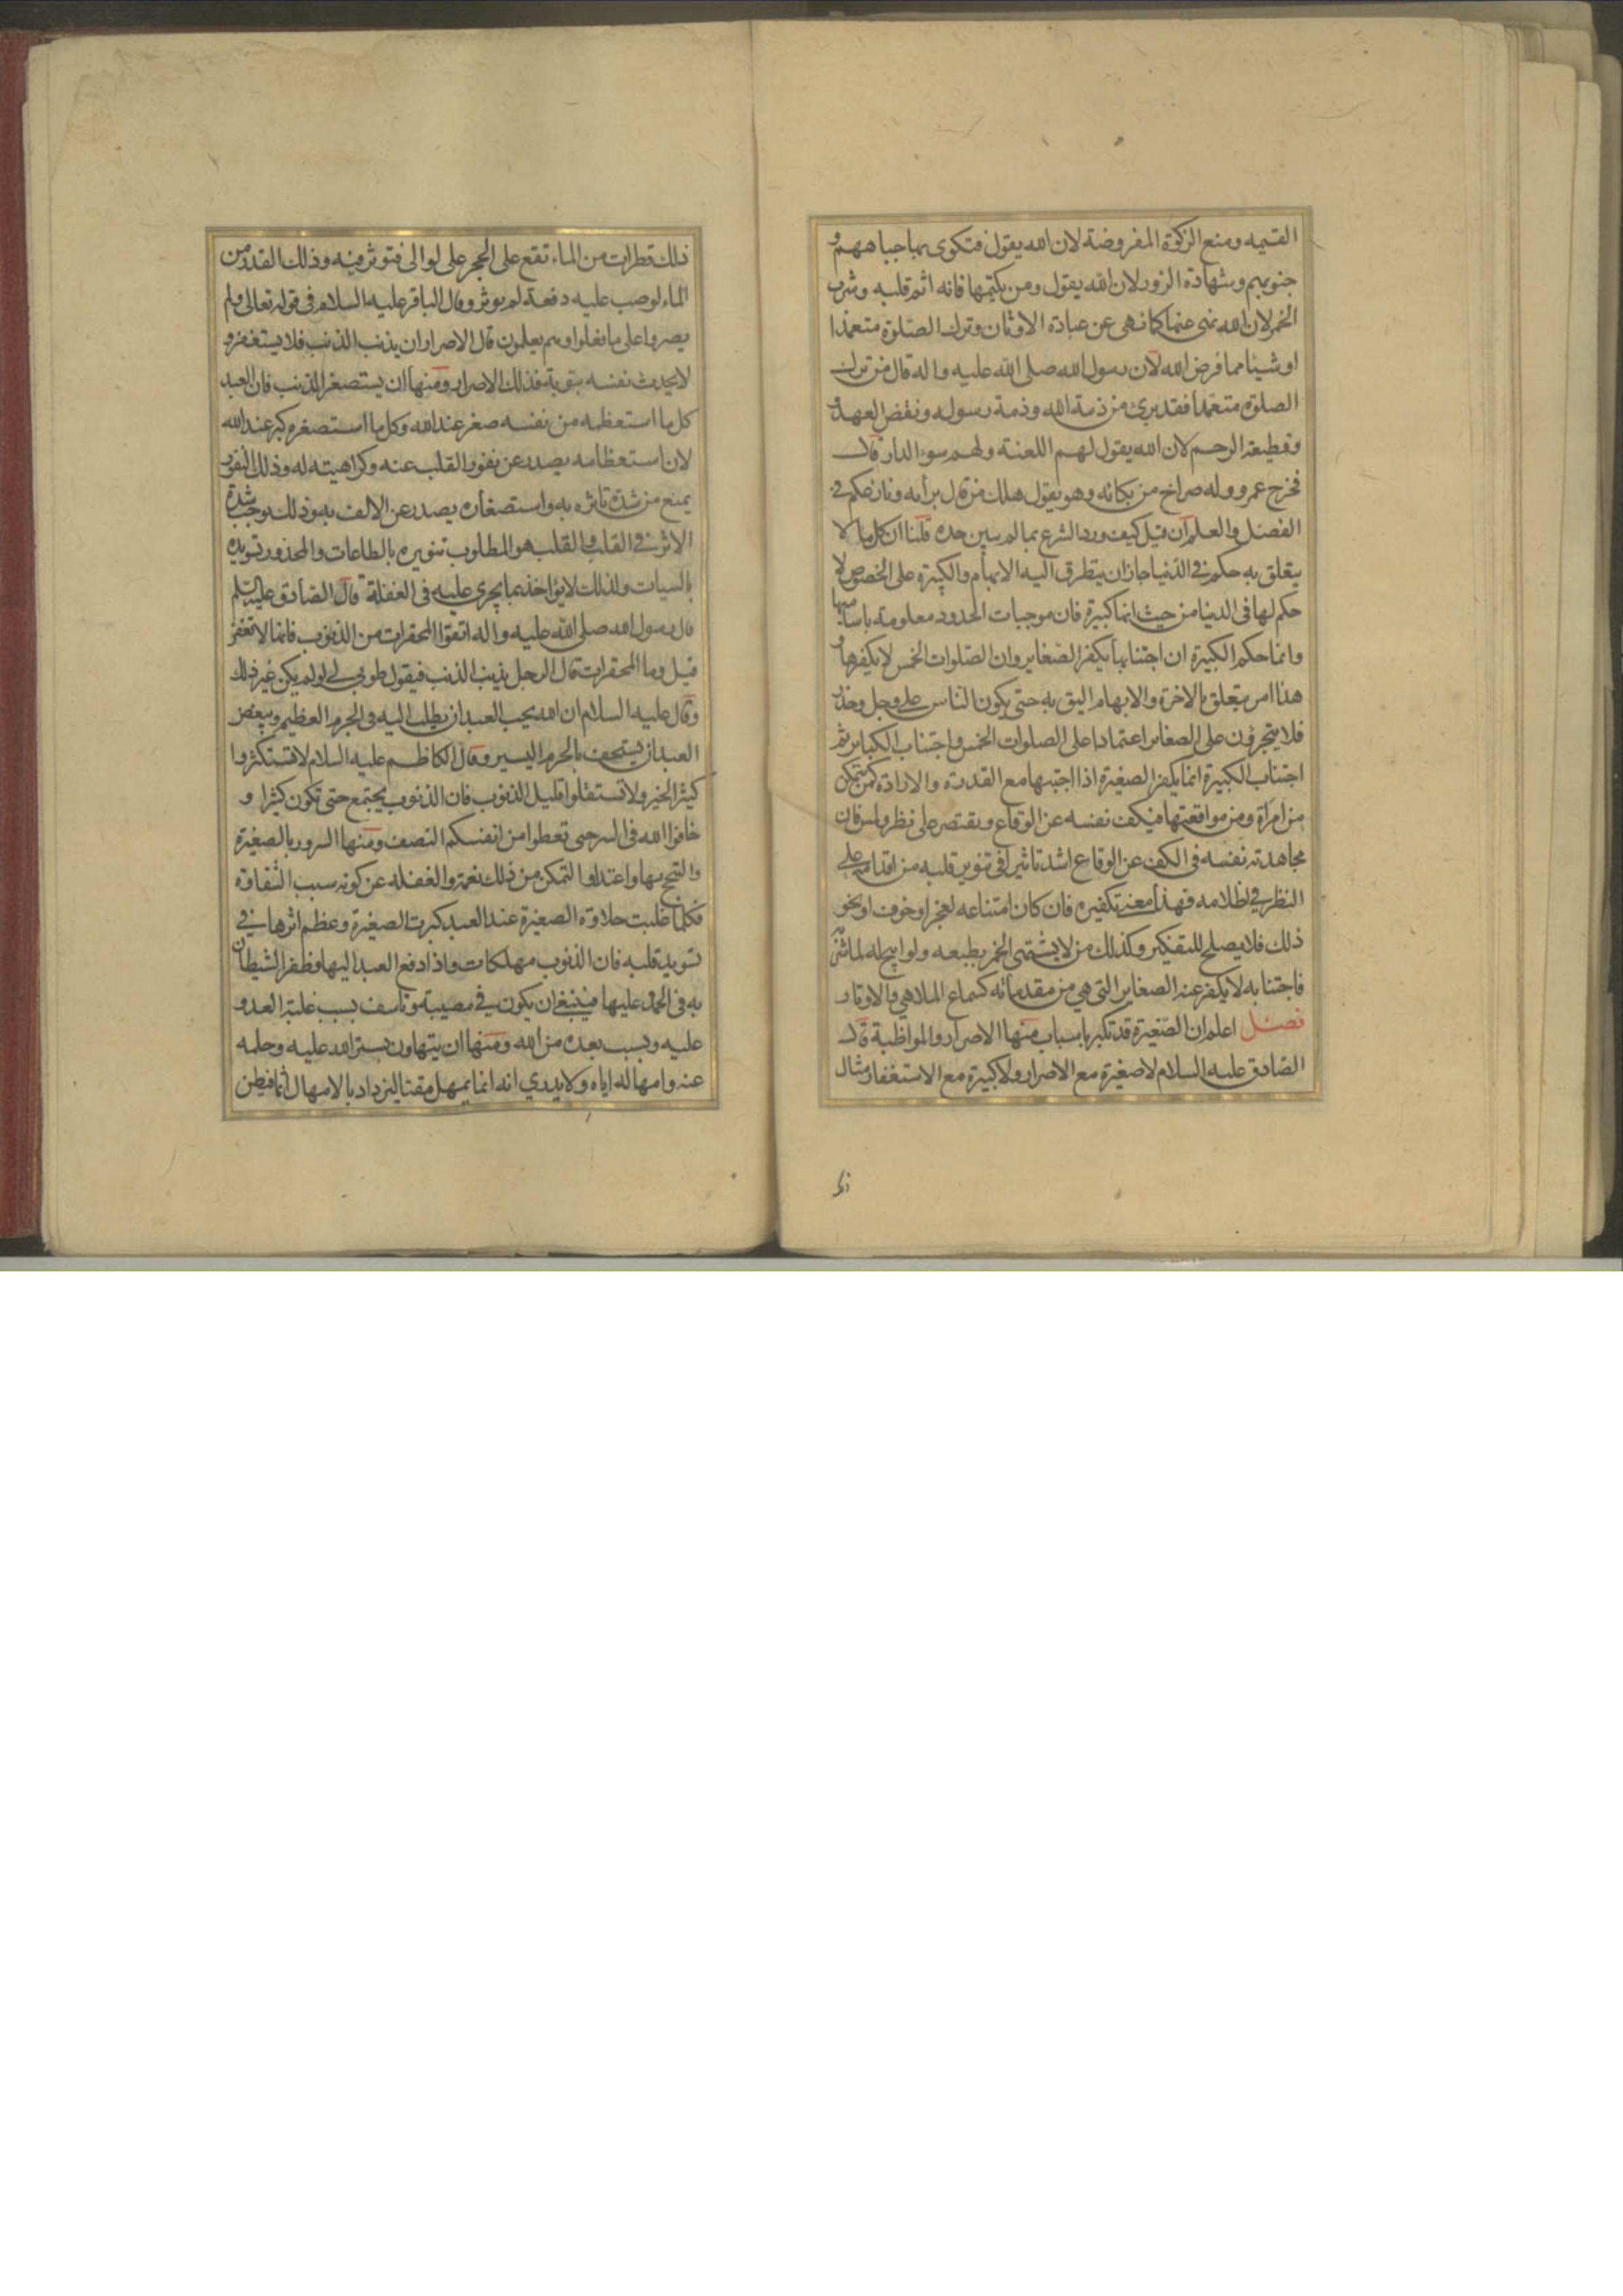 القيمه ومنع الزكوة المفروضة لان الله يقول فتكوى بها جباههم و
جنوبهم وشهادة الزور لان الله يقول ومن يكتمها فانه اثم قلبه وشرب
الخمر لان الله نهى عنها كما نهى عن عبادة الاوثان وترك الصلوة متعمدا
او شيئا مما فرض الله لان رسول الله صلى الله عليه واله قال من ترك
الصلوة متعمدا فقد برئ من ذمة الله وذمة رسوله ونقض العهد و
وقطيعة الرحم لان الله يقول لهم اللعنة ولهم سوء الدار قال
فخرج عمرو وله صراخ من بكائه وهو يقول هلك من قال برأيه ونازعكم في
الفضل والعلم فان قيل كيف ورد الشرع بما لم يبين حده قلنا ان كل ما لا
يتعلق به حكم في الدنيا جاز ان يتطرق اليه الابهام والكبيرة على الخصوص لا
حكم لها في الدنيا من حيث انها كبيرة فان موجبات الحدود معلومة باساميها
وانما حكم الكبيرة ان اجتنابها يكفر الصغاير وان الصلوات الخمس لا يكفرها و
هذا امر متعلق بالاخرة والابهام اليق به حتى يكون الناس على وجل وحذر
فلا يتجرؤن على الصغاير اعتمادا على الصلوات الخمس واجتناب الكباير ثم
اجتناب الكبيرة انما يكفر الصغيرة اذا اجتنبها مع القدرة والارادة كمن يتمكن
من امرأة ومن مواقعتها فيكف نفسه عن الوقاع ويقتصر على نظر ولمس فان
مجاهدته نفسه في الكف عن الوقاع اشد تاثيرا في تنوير قلبه من اقدامه على
النظر في اظلامه فهذا معنى تكفيره فان كان امتناعه لعجز او خوف او نحو
ذلك فلا يصلح للتفكير وكذلك من لا يشتهي الخمر بطبعه ولو ابيح له لما شربه
فاجتنابه لا يكفر عنه الصغاير التي هي من مقدماته كسماع الملاهي والاوتار
فصل اعلم ان الصغيرة قد تكبر باسباب منها الاصرار والمواظبة قال
الصادق عليه السلام لا صغيرة مع الاصرار ولا كبيرة مع الاستغفار ومثال
ذلك قطرات من الماء تقع على الحجر على توالى فتوثر فيه وذلك القدر من
الماء لو صب عليه دفعة لم يوثر وقال الباقر عليه السلام في قوله تعالى ولم
يصروا على ما فعلوا وهم يعلمون قال الاصرار ان يذنب الذنب فلا يستغفر و
لا يحدث نفسه بتوبة فذلك الاصرار ومنها ان يستصغر الذنب فان العبد
كل ما استعظمه من نفسه صغر عند الله وكل ما استصغره كبر عند الله
لان استعظامه يصدر عن نفور القلب عنه وكراهيته له وذلك النفور
يمنع من شدة تاثره به واستصغاره يصدر عن الالف به وذلك يوجب شدة
الاثر في القلب والقلب هو المطلوب تنويره بالطاعات والمحذور تسويده
بالسيات ولذلك لا يؤاخذ بما يجري عليه في الغفلة قال الصادق عليه السلم
قال رسول الله صلى الله عليه واله اتقوا المحقرات من الذنوب فانها لا تغفر
قيل وما المحقرات قال الرجل يذنب الذنب فيقول طوبى لي لو لم يكن غير ذلك
وقال عليه السلام ان الله يحب العبد ان يطلب اليه في الجرم العظيم ويبغض
العبد ان يستخف بالجرم اليسير وقال الكاظم عليه السلام لا تستكثروا
كثير الخير ولا تستقلوا قليل الذنوب فان الذنوب يجتمع حتى تكون كثيرا و
خافوا الله في السر حتى تعطوا من انفسكم النصف ومنها السرور بالصغيرة
والتبجح بها واعتداد التمكن من ذلك نعمة والغفلة عن كونه سبب الشقاوة
فكلما غلبت حلاوة الصغيرة عند العبد كبرت الصغيرة وعظم اثرها في
تسويد قلبه فان الذنوب مهلكات واذا دفع العبد اليها وظفر الشيطان
به في الحمل عليها فينبغي ان يكون في مصيبة وتاسف بسبب غلبة العدو
عليه وبسبب بعده من الله ومنها ان يتهاون بستر الله عليه وحلمه
عنه وامهاله اياه ولا يدري انه انما يمهل مقتا ليزداد بالامهال اثما فيظن